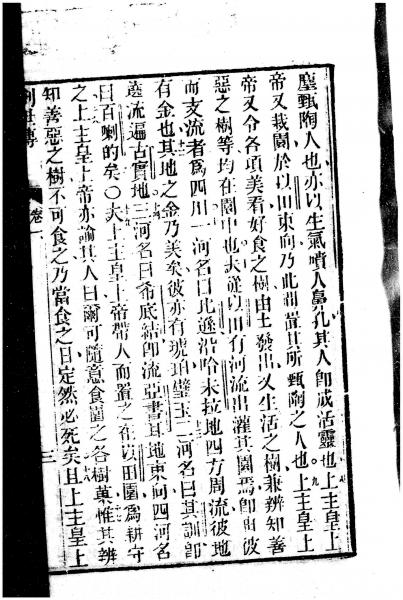 塵甄陶人也亦以生氣噴人鼻孔其人卽成活靈也上主皇上
帝又栽園於以田東向乃此間置其所甄陶之人也上主皇上
帝又令各項美看好食之樹由土發出又生活之樹兼辨知善
惡之樹等均在園中也夫遂以田有河流出灌其園焉卽由彼
而支流者爲四川一河名曰比遜沿哈未拉地四方周流彼地
有金也其地之金乃美矣彼亦有琥珀璧玉二河名曰其訓卽
遶流遍古實地三河名曰希底結卽流亞書耳地東向四河名
曰百喇的矣〇夫上主皇上帝帶人而置之在以田園爲耕守
之上主皇上帝亦諭其人曰爾可隨意食園之各樹菓惟其辨
知善惡之樹不可食之乃當食之日定然必死矣且上主皇上
卷一
三